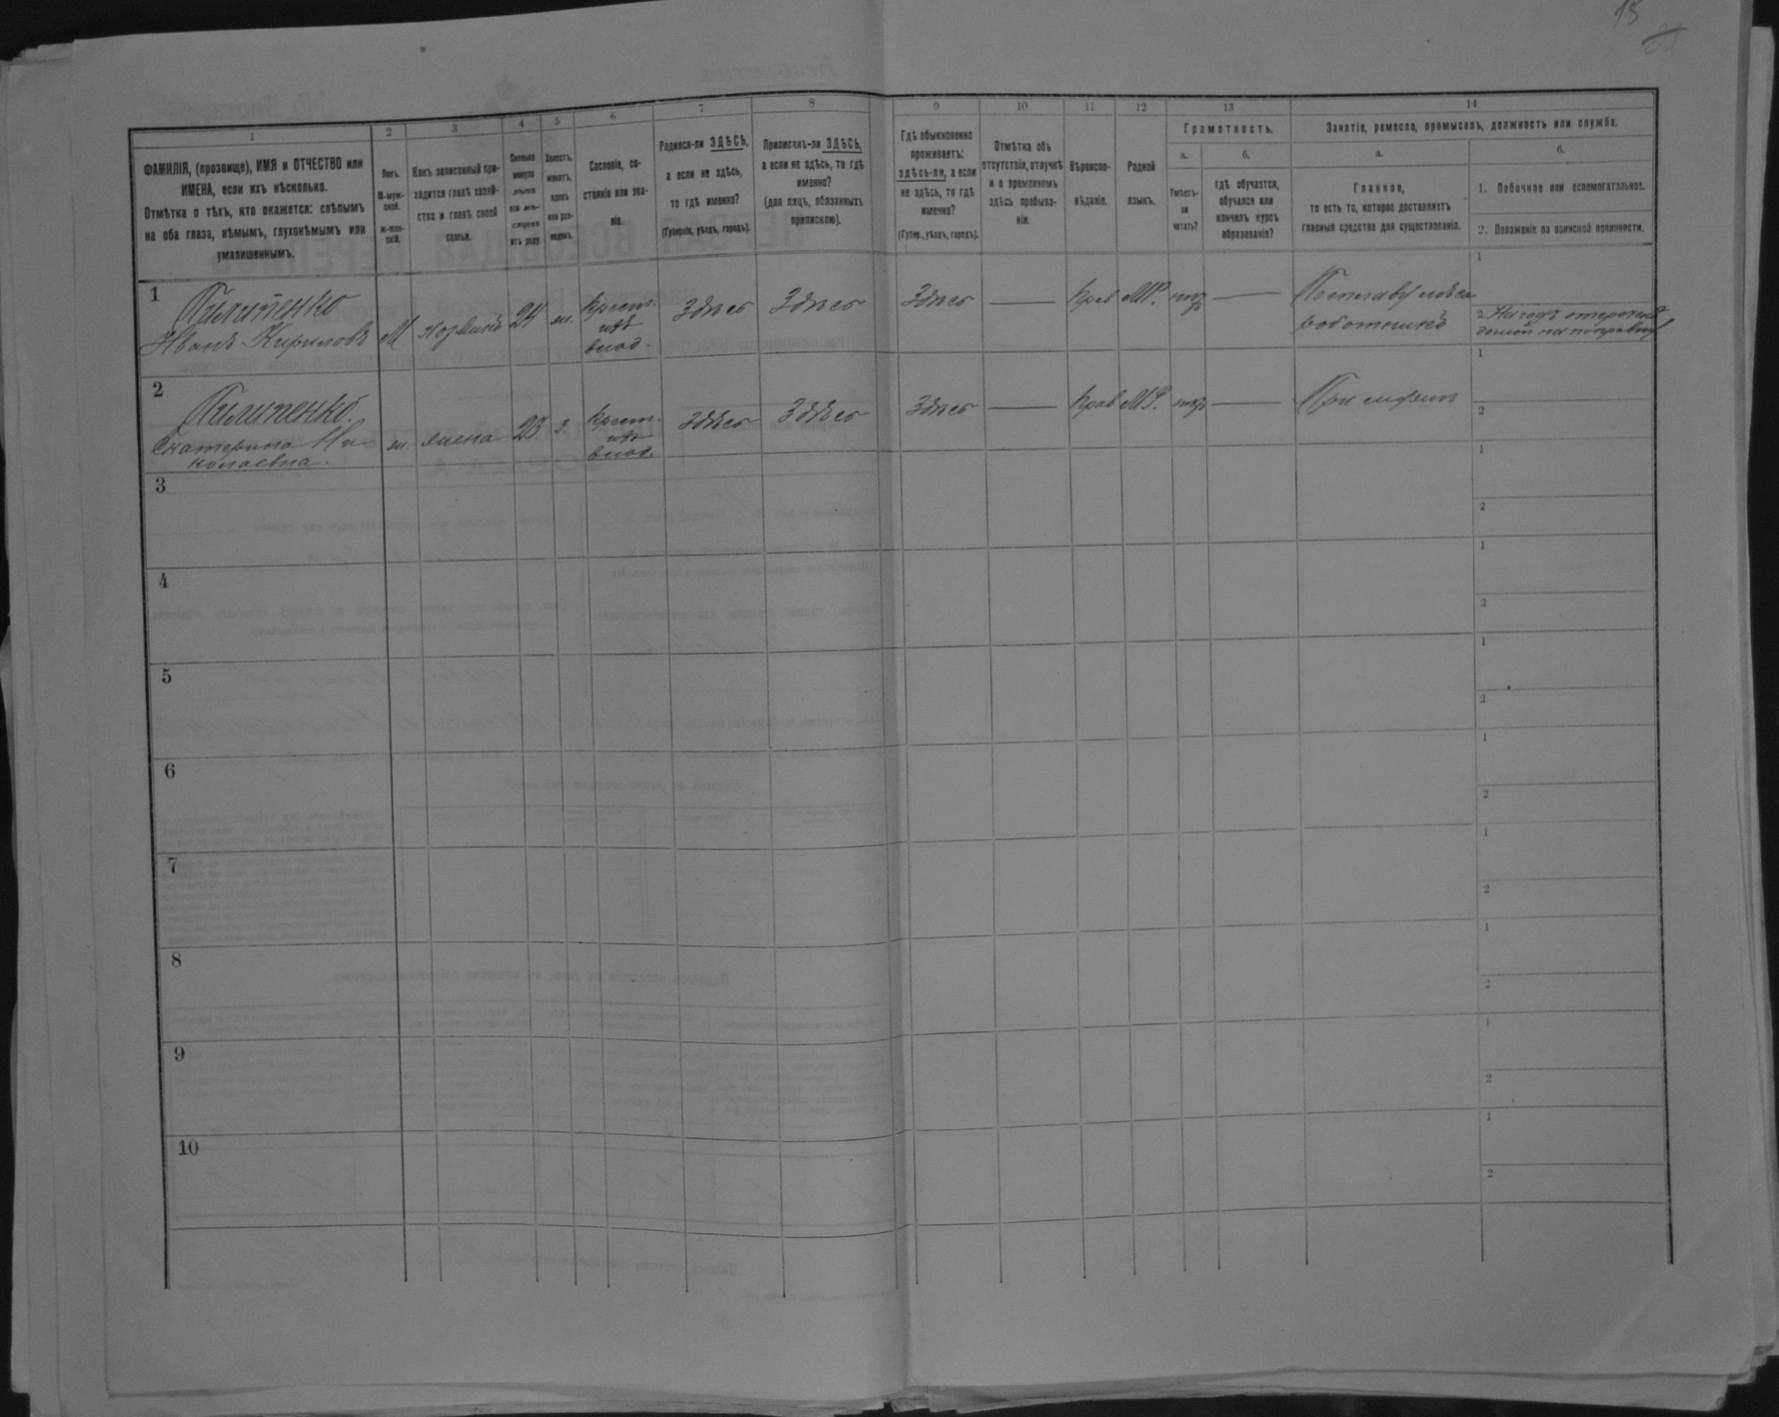 18
1
2
3
4
5
6
7
8
9
10
11
12
13
14
ФАМИЛІЯ, (прозвище), ИМЯ и ОТЧЕСТВО или
ИМЕНА, если ихъ нѣсколько.
Отмѣтка о тѣхъ, кто окажется: слѣпымъ
на оба глаза, нѣмымъ, глухонѣмымъ или
умалишеннымъ.
Полъ.
М-муж-
ской.
Ж-жен-
скій.
Какъ записанный при-
ходится главѣ хозяй-
ства и главѣ своей
семьи.
Сколько
минуло
лѣтъ
или мѣ-
сяцевъ
отъ роду.
Холостъ,
женатъ,
вдовъ
или раз-
веденъ.
Сословіе, со-
стояніе или зва-
ніе.
Родился-ли ЗДѢСЬ,
а если не здѣсь,
то гдѣ именно?
(Губернія, уѣздъ, городъ).
Приписанъ-ли ЗДѢСЬ,
а если не здѣсь, то гдѣ
именно?
(для лицъ, обязанныхъ
припискою).
Гдѣ обыкновенно
проживаетъ:
здѣсь-ли, а если
не здѣсь, то гдѣ
именно?
(Губер., уѣздъ, городъ).
Отмѣтка объ
отсутствіи, отлучкѣ
и о временномъ
здѣсь пребыва-
ніи.
Вѣроиспо-
вѣданіе.
Родной
языкъ.
Грамотность.
а.
Умѣетъ-
ли
читать?
б.
гдѣ обучается,
обучался или
кончилъ курсъ
образованія?
Занятіе, ремесло, промыселъ, должность или служба.
а.
Главное,
то есть то, которое доставляетъ
главныя средства для существованія.
б.
1. Побочное или вспомогательное.
2. Положеніе по воинской повинности.
1
Пилипенко
Иванъ Кириловъ
М
хозяинъ
24
ж.
Крест.
изъ
влад.
Здѣсь
Здѣсь
Здѣсь
Прав
МР.
1
2
2
Пилипенко
Екатерина Ни
колаевна.
ж.
жена
23
з.
Крест.
изъ
влад.
Здѣсь
Здѣсь
Здѣсь
Прав
МР.
При мужѣ
1
2
3
1
2
4
1
2
5
1
2
6
1
2
7
1
2
8
1
2
9
1
2
10
1
2